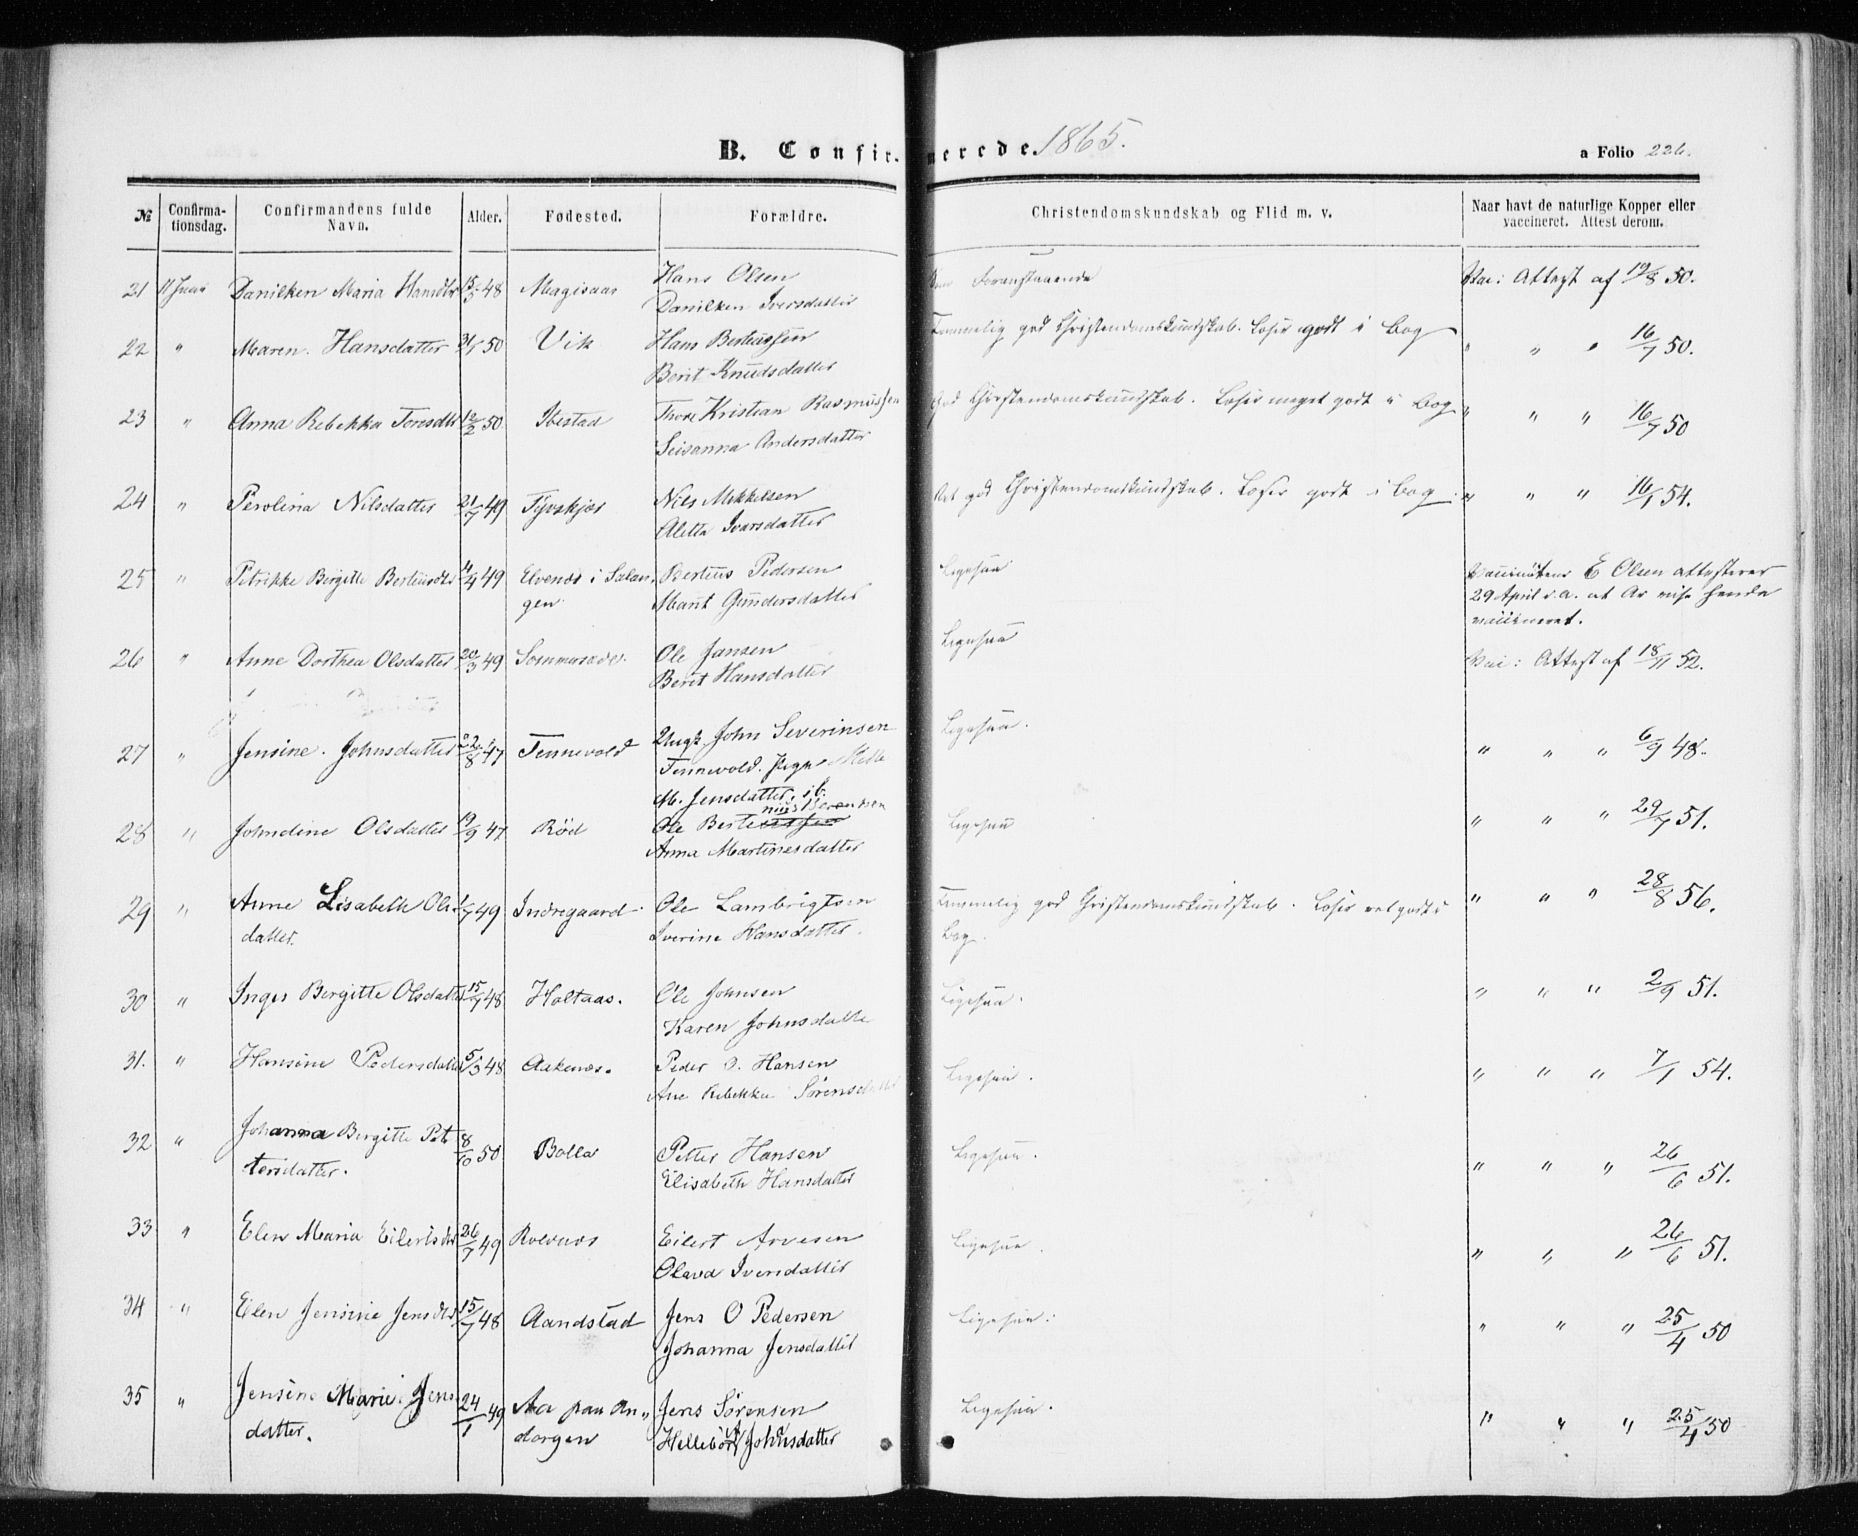 B. Confirmerede. 1865.
a Folio 226.
№ Confirmationsdag. Confirmandens fulde Navn. Alder. Fødested. Forældre. Christendomskundskab og Flid m. v. Naar havt de naturlige Kopper eller vaccineret. Attest derom.
21 Danilken Maria Hansdtr 48 Hans Olsen Foranstaaende Vac: Attest af 19/8 50.
Danilken Iversdatter
22 " Maren. Hansdatter 50 Vik Hans Berteussen Temmelig god Christendomskundskab. Læser godt i Bog " " " 16/7 50.
Berit Knudsdatter
23 " Anna Rebekka Toresdtr 12/2 50 Ibestad Thore Kristian Rasmussen God Christendomskundskab. Læser meget godt i Bog " " " 16/7 50
Andersdatter
24 " Perolina Nilsdatter 21/7 49 Nils Mikkelsen god Christendomskundskab. Læser godt i Bog " " " 16/1 54.
Aletta Ivarsdatter
25 " Petrikke Bergitte Berteusdtr 4/4 49 Elvenes i Salan- Berteus Pedersen Ligesaa Vaccinatøren E Olsen attesterer
gen Marit Gundersdatter 29 April d.a. at hende
vaccineret.
26 " Anne Dorthea Olsdatter 20/3 49 Ole Jansen Ligesaa Vac: Attest af 18/11 52.
Beret Hansdatter
27 " Jensine. Johnsdatter 22/8 47 Tennevold Ungk John Severinsen Ligesaa. " " " 6/9 48.
Tennevold. Pige Mette
M. Jensdatter, ib.
28 " Johndine Olsdatter 19/9 47 Rød Ole Ligesaa " " " 29/7 51.
Anna Martinesdatter
29 " Anne Lisabeth Ols- 1/7 49 Indregaard Ole Lambrigtsen Temmelig god Christendomskundskab. Læser vel godt i " " " 28/8 56.
datter. Iverine Hansdatter. Bog.
30 " Inger Bergitte Olsdatter 15/7 48 Holtaas. Ole Johnsen Ligesaa. " " " 2/9 51.
Karen Johnsdatte
31. " Hansine Pedersdatter 5/3 48 Aakenes. Peder O. Hansen Ligesaa. " " " 7/1 54.
Ane Rebekka Sørensdatter
32 " Johanna Bergitte Pet- 8/10 50 Bolla Petter Hansen Ligesaa. " " " 26/6 51.
tersdatter. Elisabeth Hansdatter
33 " Elen Maria Eilertsdtr 26/7 49 Rolvnes Eilert Arvesen Ligesaa. " " " 26/6 51.
Olava Iversdatter
34 " Elen Jensine Jensdtr 15/7 48 Aandstad Jens O Pedersen Ligesaa. " " " 25/4 50
Johanna Jensdatter
35 " Jensine Marie. Jens- 24/1 49 Aa paa An- Jens Sørensen Ligesaa. " " " 25/4 50
datter. dorgen Hellebør Johnsdatter